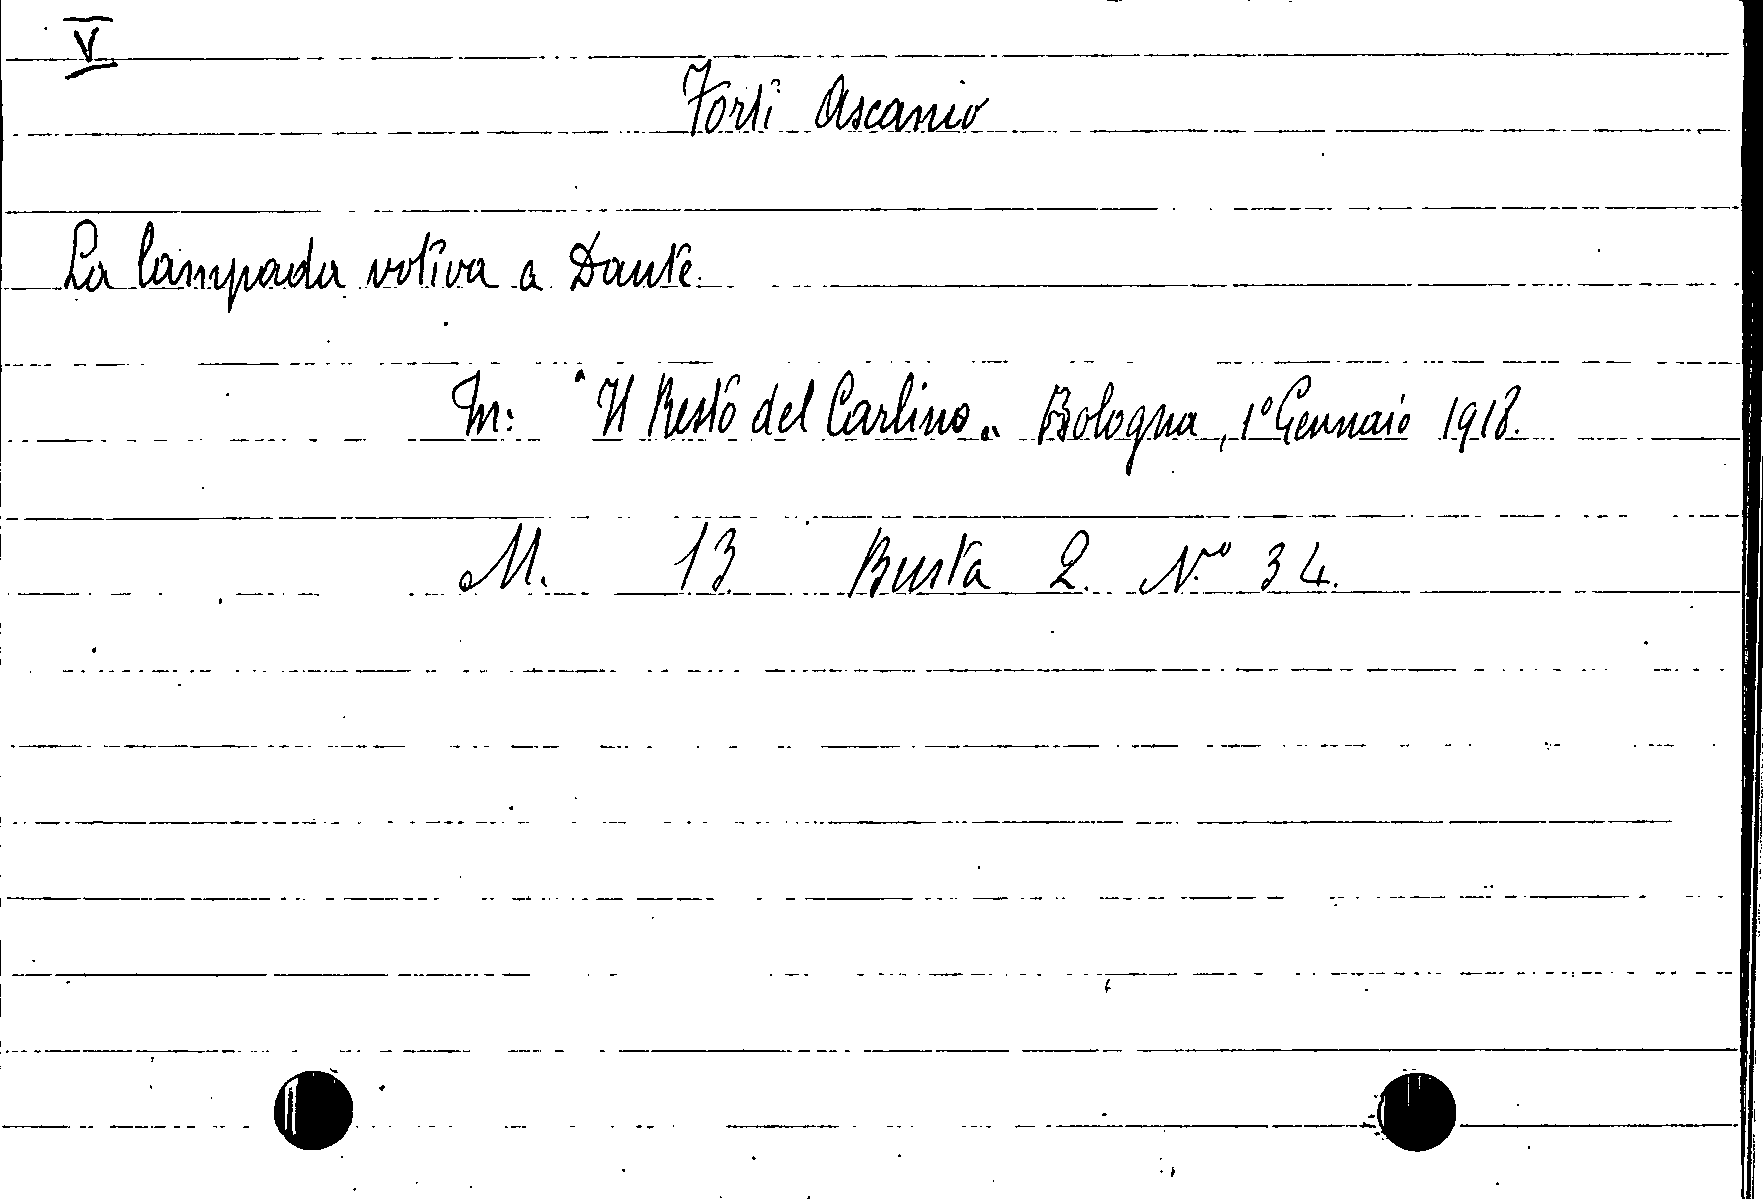 V
Forti Ascanio
La lampada votiva a Dante.
In: "Il Resto del Carlino„ Bologna, 1º Gennaio 1918.
M. 13 Busta 2. Nº 34.